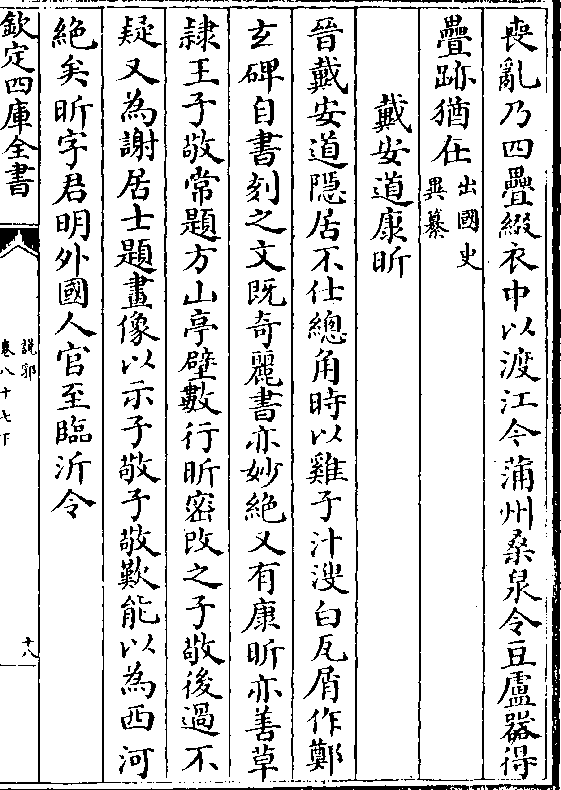 喪亂乃四疊綴衣中以渡江今蒲州桑泉令豆盧器得
疊跡猶在出國史
異纂
戴安道康昕
晉戴安道隱居不仕總角時以雞子汁溲白瓦屑作鄭
玄碑自書刻之文既奇麗書亦妙絶又有康昕亦善草
隸王子敬常題方山亭壁數行昕密改之子敬後過不
疑又為謝居士題畫像以示子敬子敬歎能以為西河
絶矣昕字君明外國人官至臨沂令
欽定四庫全書
說郛
卷八十七下
十八